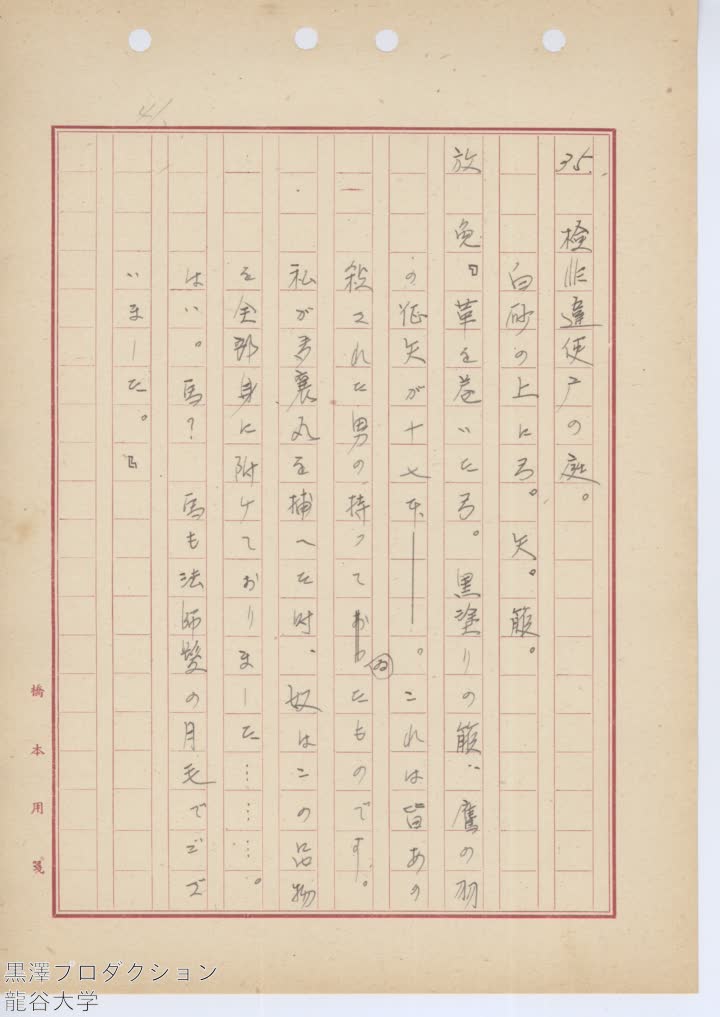 41.
35. 検非違使庁の庭。
白砂の上に弓。矢。箙。
放免『革を巻いた弓。黒塗りの箙、鷹の羽
の征矢が十七本、――。これは皆あの
殺された男の持ってゐたものです。
私が多襄丸を捕へた時、奴はこの品物
を全部身に附けておりました………。
はい。馬? 馬も法師髪の月毛でござ
いました。』
橋本用箋
黒澤プロダクション
龍谷大学